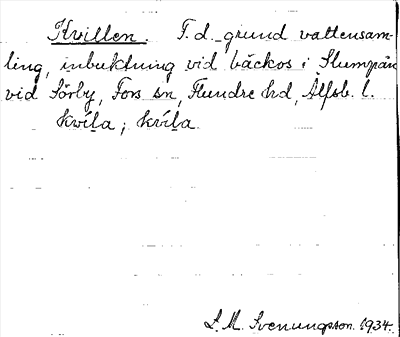 Kvillen. F.d. grund vattensam-
ling, inbuktning vid bäckos i Slumpån
vid Sörby, Fors sn, Flundre hd, Älfsb. l.
kvíl̠a, kvíl̠a.
S. M. Svenungsson. 1934.